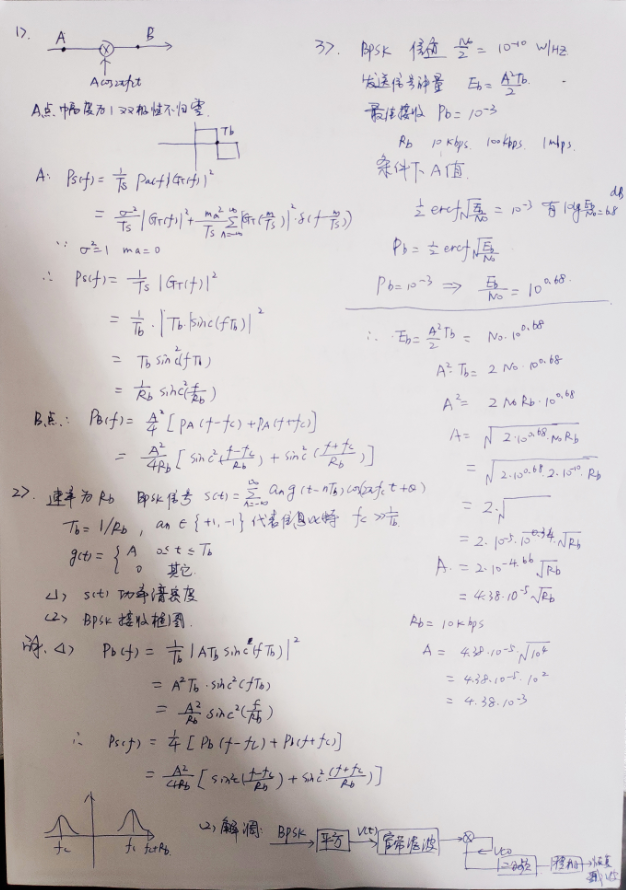 1>.
A B
Acos2πfct
A点 幅度为1双极性不归零.
Tb
A: Ps(f) = 1/Ts Pa(f)|GT(f)|²
= σ²/Ts |GT(f)|² + ma²/Ts ∑ |GT(n/Ts)|²·δ(f-n/Ts)
∵ σ²=1 ma=0
∴ Ps(f) = 1/Ts |GT(f)|²
= 1/Tb · |Tb·|sinc(fTb)|²
= Tb sinc²(fTb)
= 1/Rb sinc²(f/Rb)
B点: PB(f) = A²/4 [PA(f-fc)+PA(f+fc)]
= A²/4Rb [sinc²(f-fc/Rb) + sinc²(f+fc/Rb)]
2>. 速率为Rb BPSK信号 s(t)=∑ an g(t-nTb)cos(2πfct+θ)
Tb=1/Rb, an∈{+1,-1}代表信息比特 fc≫1/Tb
g(t)= { A 0≤t≤Tb
0 其它.
<1> s(t)功率谱密度
<2> BPSK 接收框图.
解. <1> Pb(f) = 1/Tb |ATb sinc(fTb)|²
= A²Tb·sinc²(fTb)
= A²/Rb sinc²(f/Rb)
∴ Ps(f) = 1/4 [Pb(f-fc)+Pb(f+fc)]
= A²/4Rb [sinc²(f-fc/Rb) + sinc²(f+fc/Rb)]
fc fc fc+Rb.
(2) 解调: BPSK 平方 V(t) 窄带滤波
3>. BPSK 信道 N0/2 = 10⁻¹⁰ W/HZ
发送信号能量 Eb = A²Tb/2.
最佳接收 Pb = 10⁻³
Rb 10kbps. 100kbps. 1mbps.
条件下A值.
1/2 erfc√(Eb/N0) = 10⁻³ 有10lg Eb/N0=6.8 dB
Pb = 1/2 erfc√(Eb/N0)
Pb=10⁻³ ⟹ Eb/N0 = 10^0.68.
∴ Eb = A²Tb/2 = N0·10^0.68
A²·Tb = 2N0·10^0.68
A² = 2N0Rb·10^0.68
A = √(2·10^0.68·N0Rb)
= √(2·10^0.68·2·10⁻¹⁰·Rb)
= 2·√
= 2·10⁻⁵·10^0.34·√Rb
A. = 2·10^-4.66 √Rb
= 4.38·10⁻⁵ √Rb
Rb = 10kbps
A = 4.38·10⁻⁵·√10⁴
= 4.38·10⁻⁵·10²
= 4.38·10⁻³